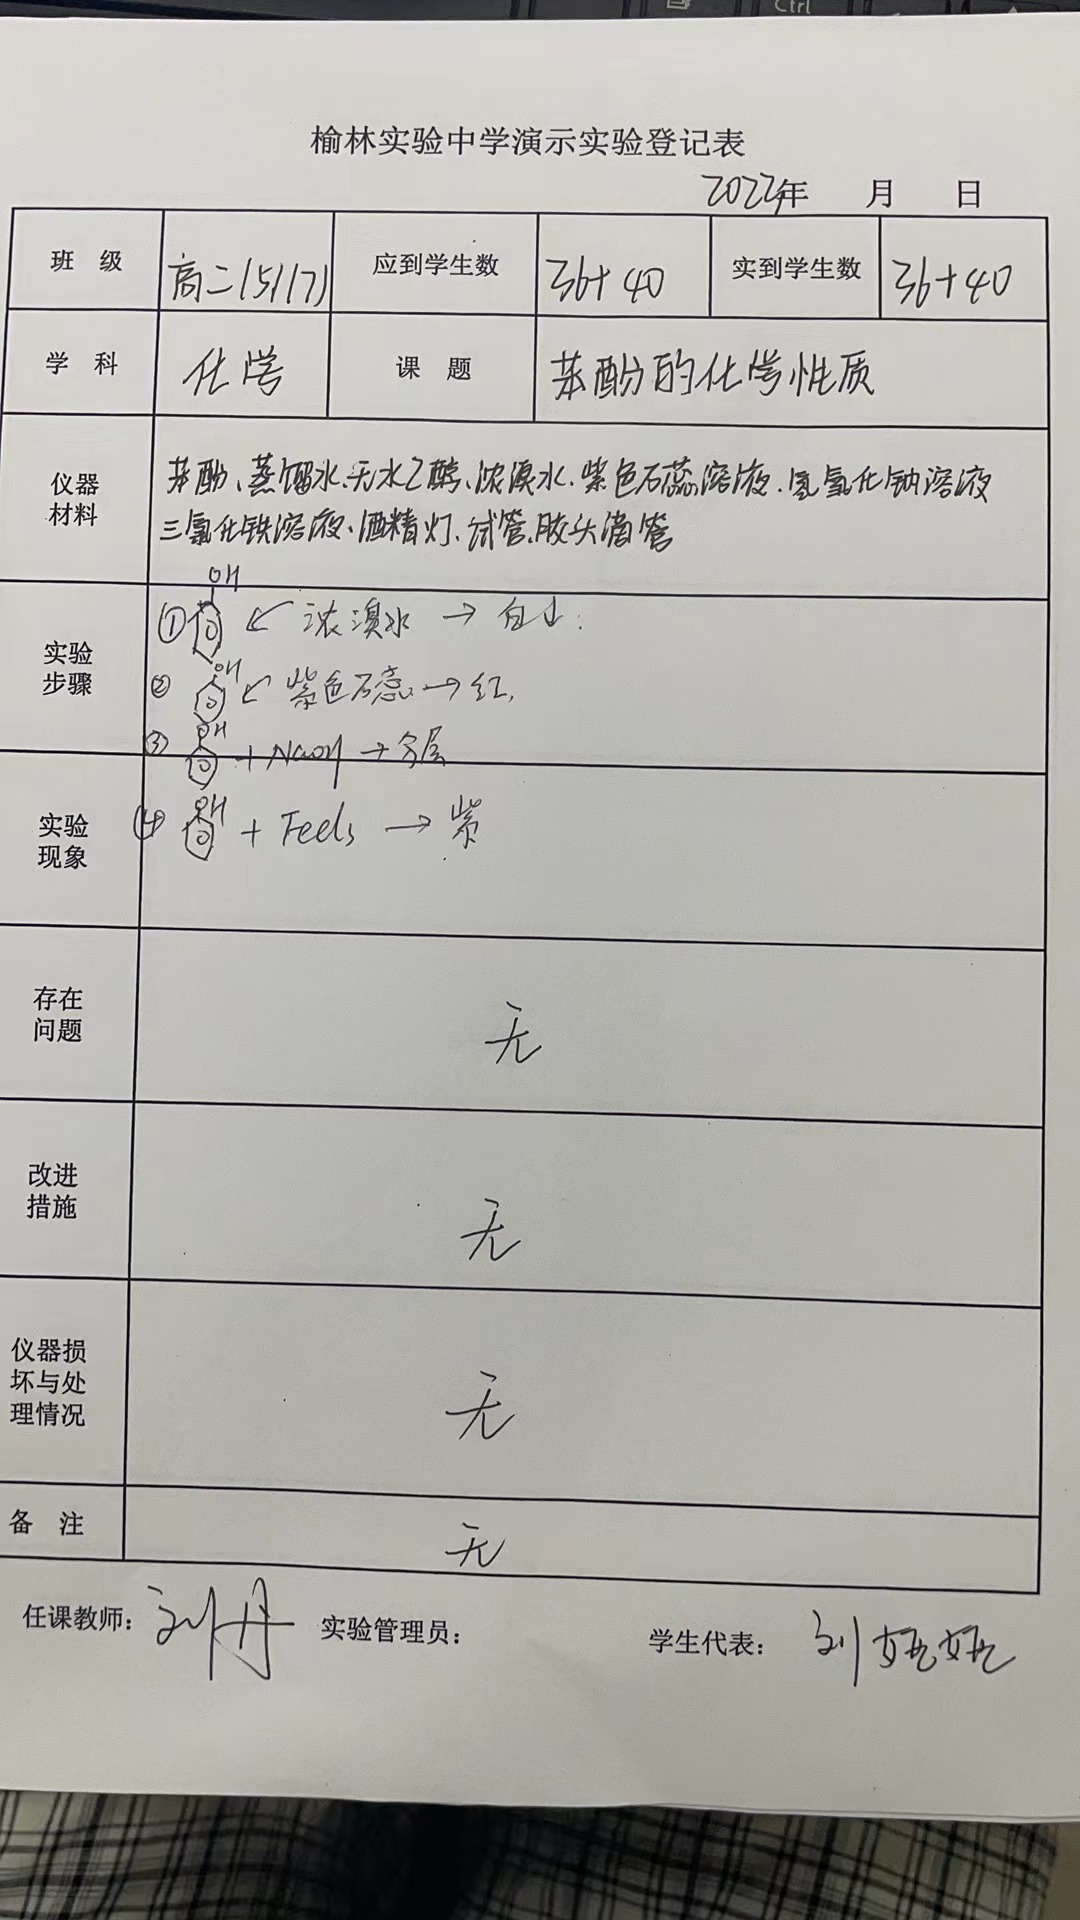 Ctrl
榆林实验中学演示实验登记表
2022年 月 日
班 级 高二(5)(7) 应到学生数 36+40 实到学生数 36+40
学 科 化学 课 题 苯酚的化学性质
仪器材料 苯酚、蒸馏水、无水乙醇、浓溴水、紫色石蕊溶液、氢氧化钠溶液
三氯化铁溶液、酒精灯、试管、胶头滴管
实验步骤
OH
① ← 浓溴水 → 白↓.
OH
② ← 紫色石蕊 → 红.
OH
③ + NaOH → 分层
实验现象
OH
④ + FeCl3 → 紫
存在问题 无
改进措施 无
仪器损坏与处理情况 无
备 注 无
任课教师: 刘丹 实验管理员: 学生代表: 刘